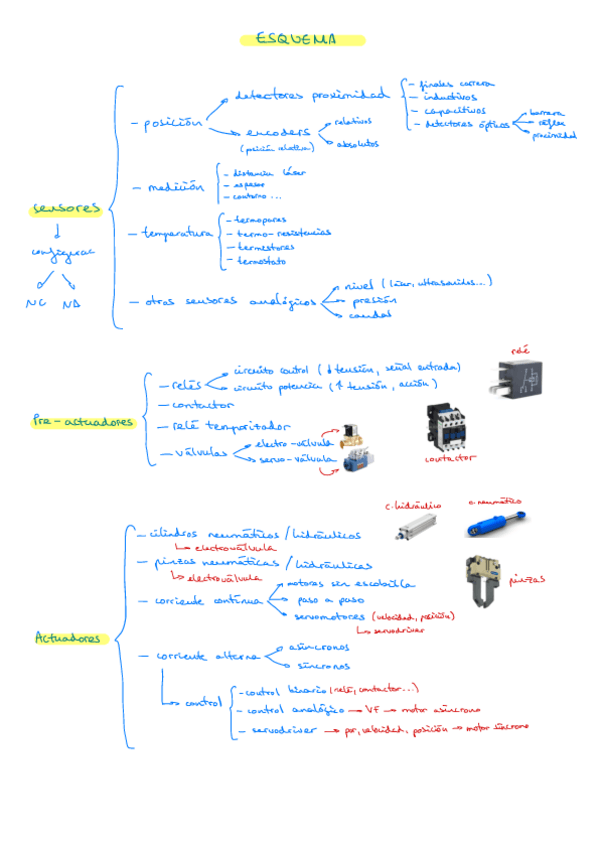 ESQUEMA
sensores
configurac
NC NA
- posición
detectores proximidad
- finales carrera
- inductivos
- capacitivos
- detectores ópticos
barrera
réflex
proximidad
encoders
(posición relativa)
relativos
absolutos
- medición
- distancia láser
- espesor
- contorno ...
- temperatura
- termopares
- termo-resistencias
- termistores
- termostato
- otros sensores analógicos
nivel (láser, ultrasonidos...)
presión
caudal
Pre-actuadores
- relés
circuito control (↓ tensión, señal entrada)
circuito potencia (↑ tensión, acción)
- contactor
- relé temporizador
- válvulas
electro-válvula
servo-válvula
relé
contactor
Actuadores
- cilindros neumáticos / hidráulicos
electroválvula
- pinzas neumáticas / hidráulicas
electroválvula
- corriente continua
motores sin escobilla
paso a paso
servomotores (velocidad, posición)
servodriver
- corriente alterna
asíncronos
síncronos
control
- control binario (relé, contactor...)
- control analógico → VF → motor asíncrono
- servodriver → par, velocidad, posición → motor síncrono
c. hidráulico
c. neumático
pinzas